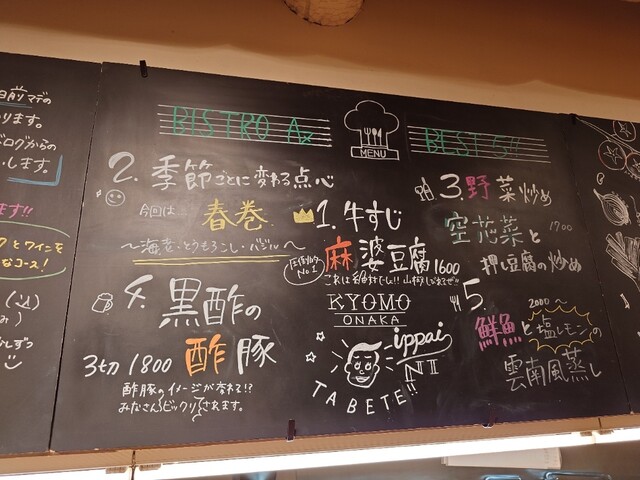 日前マデの
ります。
ログからの
します。
ます!!
クとワインを
なコース!
BISTRO A
MENU
BEST 5!!
2. 季節ごとに変わる点心
今回は 春巻
〜海老・とうもろこし・バジル〜
1. 牛すじ
圧倒的
No1
麻婆豆腐 1600
これは絶対でしょ!! 山椒
KYOMO
ONAKA
ippai
NI
TABETE!!
3. 野菜炒め
空芯菜と 1700
押し豆腐の炒め
4. 黒酢の
3切 1800 酢豚
酢豚のイメージが変わる!?
みなさんビックリされます。
5. 2000〜
鮮魚と塩レモンの
雲南風蒸し